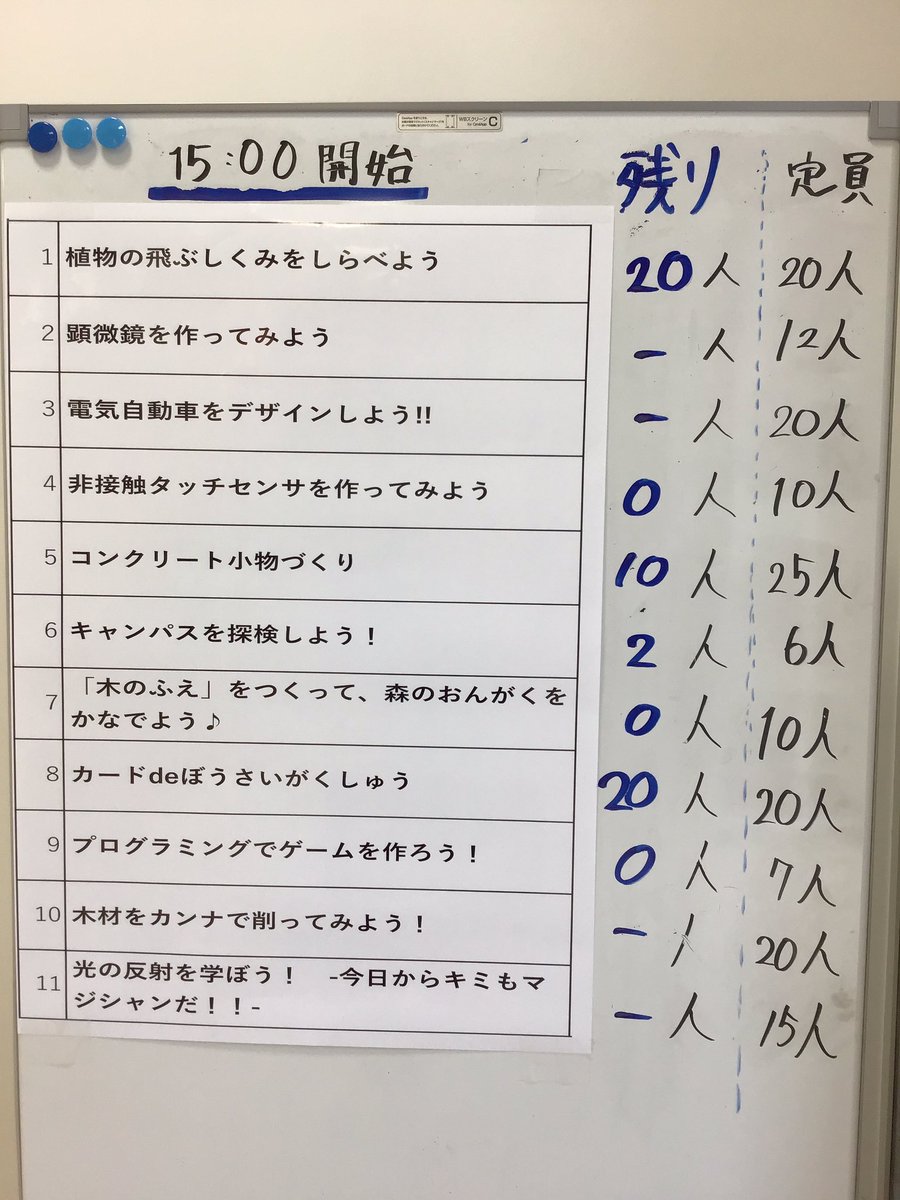 15:00 開始 残り 定員
1 植物の飛ぶしくみをしらべよう 20人 20人
2 顕微鏡を作ってみよう - 人 12人
3 電気自動車をデザインしよう!! - 人 20人
4 非接触タッチセンサを作ってみよう 0人 10人
5 コンクリート小物づくり 10人 25人
6 キャンパスを探検しよう！ 2人 6人
7 「木のふえ」をつくって、森のおんがくを
かなでよう♪ 0人 10人
8 カードdeぼうさいがくしゅう 20人 20人
9 プログラミングでゲームを作ろう！ 0人 7人
10 木材をカンナで削ってみよう！ - 人 20人
11 光の反射を学ぼう！　-今日からキミもマ
ジシャンだ！！- - 人 15人